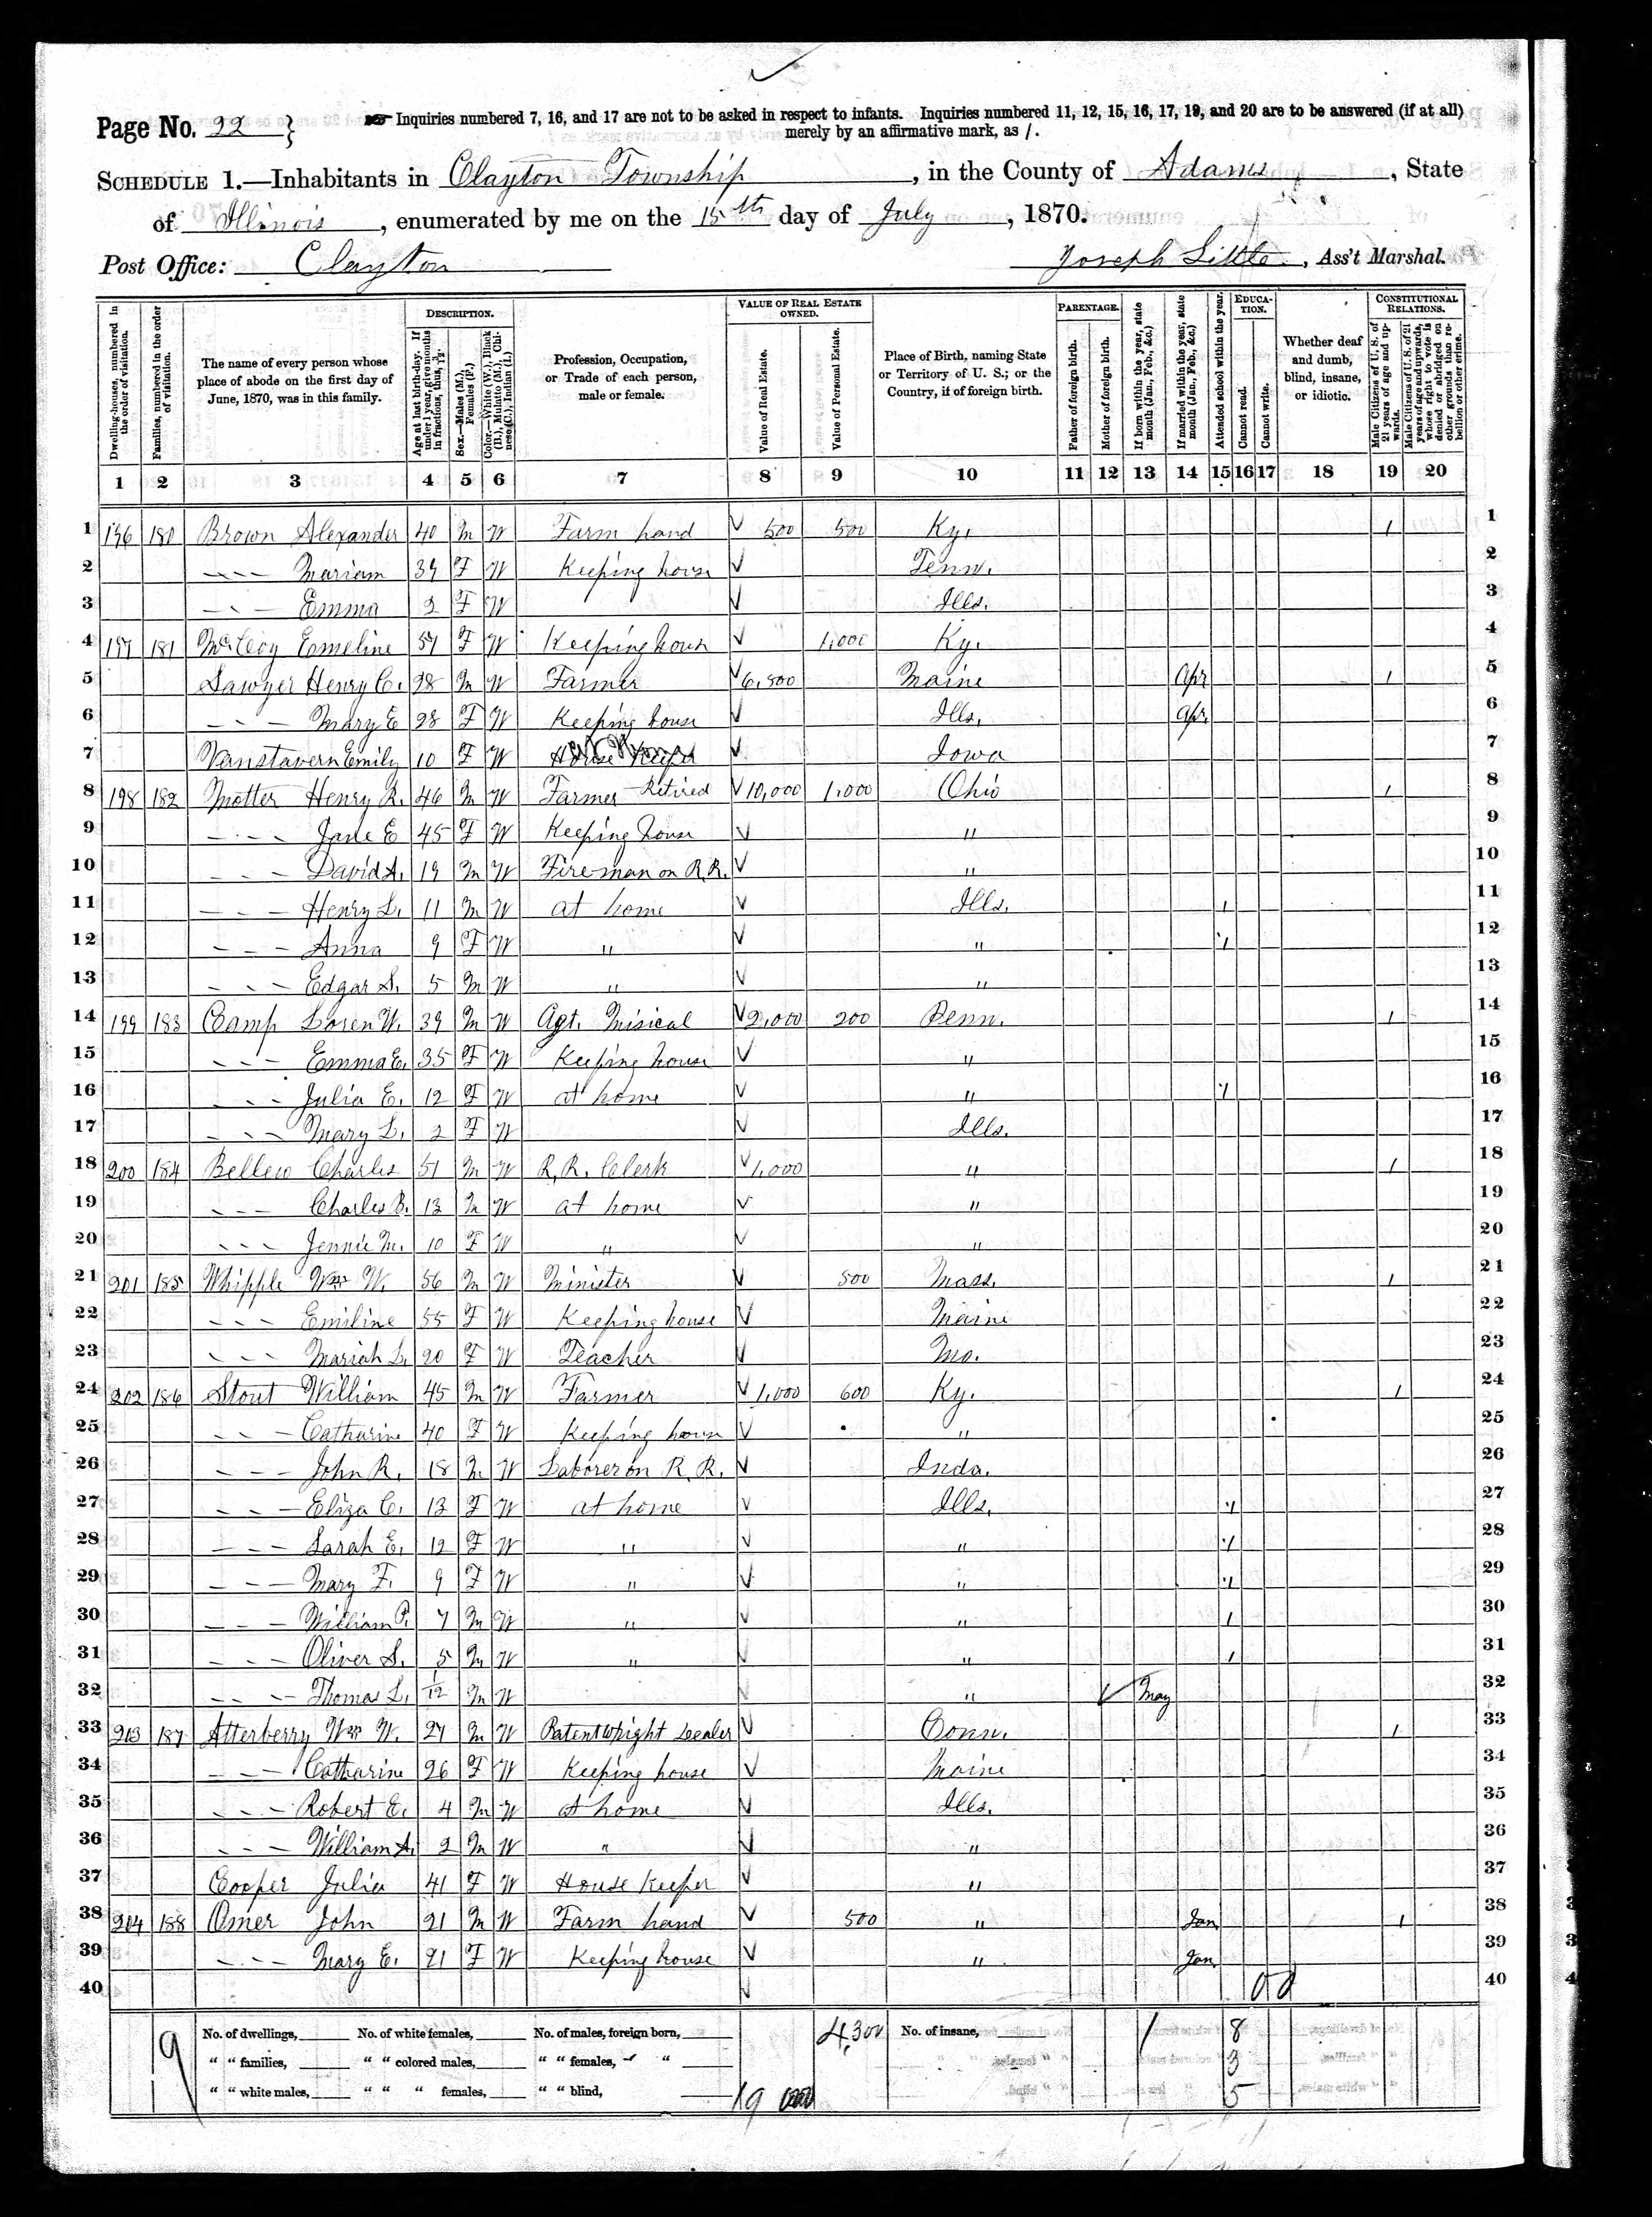 Page No. 22 }
Inquiries numbered 7, 16, and 17 are not to be asked in respect to infants. Inquiries numbered 11, 12, 15, 16, 17, 19, and 20 are to be answered (if at all)
merely by an affirmative mark, as /.
SCHEDULE 1.—Inhabitants in Clayton Township, in the County of Adams, State
of Illinois, enumerated by me on the 15th day of July, 1870.
Post Office: Clayton Joseph Little, Ass't Marshal.
Dwelling-houses, numbered in the order of visitation.
Families, numbered in the order of visitation.
The name of every person whose place of abode on the first day of June, 1870, was in this family.
DESCRIPTION.
Age at last birth-day. If under 1 year, give months in fractions, thus, 3/12.
Sex.—Males (M.), Females (F.)
Color.—White (W.), Black (B.), Mulatto (M.), Chinese (C.), Indian (I.)
Profession, Occupation, or Trade of each person, male or female.
VALUE OF REAL ESTATE OWNED.
Value of Real Estate.
Value of Personal Estate.
Place of Birth, naming State or Territory of U. S.; or the Country, if of foreign birth.
PARENTAGE.
Father of foreign birth.
Mother of foreign birth.
If born within the year, state month (Jan., Feb., &c.)
If married within the year, state month (Jan., Feb., &c.)
Attended school within the year.
EDUCATION.
Cannot read.
Cannot write.
Whether deaf and dumb, blind, insane, or idiotic.
CONSTITUTIONAL RELATIONS.
Male Citizens of U. S. of 21 years of age and upwards.
Male Citizens of U. S. of 21 years of age and upwards, whose right to vote is denied or abridged on other grounds than rebellion or other crime.
1 2 3 4 5 6 7 8 9 10 11 12 13 14 15 16 17 18 19 20
1 196 180 Brown Alexander 40 M W Farm hand 500 500 Ky. / 1
2 --- Mariam 39 F W Keeping house Tenn. 2
3 --- Emma 2 F W Ills. 3
4 197 181 Emeline 57 F W Keeping house 1,000 Ky. 4
5 Sawyer Henry C. 28 M W Farmer 6,500 Maine Apr / 5
6 --- Mary E 28 F W Keeping house Ills. Apr 6
7 Vanstavern Emily 10 F W Iowa 7
8 198 182 Motter Henry R. 46 M W Farmer Retired 10,000 1,000 Ohio / 8
9 --- Jane E 45 F W Keeping house " 9
10 --- David A. 19 M W Fireman on R.R. " 10
11 --- Henry L. 11 M W at home Ills. / 11
12 --- Anna 9 F W " " / 12
13 --- Edgar S. 5 M W " " 13
14 199 183 Camp Loren W. 39 M W Agt. Misical 2,000 200 Penn. / 14
15 --- Emma E. 35 F W Keeping house " 15
16 --- Julia E. 12 F W at home " / 16
17 --- Mary L. 2 F W Ills. 17
18 200 184 Bellew Charles 51 M W R.R. Clerk 1,000 " / 18
19 --- Charles B. 13 M W at home " 19
20 --- Jennie M. 10 F W " " 20
21 201 185 Whipple Wm W. 56 M W Minister 500 Mass. / 21
22 --- Emiline 55 F W Keeping house Maine 22
23 --- Mariah L. 20 F W Teacher Mo. 23
24 202 186 Stout William 45 M W Farmer 1,000 600 Ky. / 24
25 --- Catharine 40 F W Keeping house " 25
26 --- John R. 18 M W Laborer on R.R. Inda. 26
27 --- Eliza C. 13 F W at home Ills. / 27
28 --- Sarah E. 12 F W " " / 28
29 --- Mary F. 9 F W " " / 29
30 --- William P. 7 M W " " / 30
31 --- Oliver S. 5 M W " " / 31
32 --- Thomas L. 1/12 M W " May 32
33 203 187 Atterberry Wm W. 27 M W Patent Wright Dealer Conn. / 33
34 --- Catharine 26 F W Keeping house Maine 34
35 --- Robert E. 4 M W at home Ills. 35
36 --- William A. 2 M W " " 36
37 Cooper Julia 41 F W House Keeper " 37
38 204 188 Omer John 21 M W Farm hand 500 " Jan / 38
39 --- Mary E. 21 F W Keeping house " Jan 39
40 40
No. of dwellings, No. of white females, No. of males, foreign born, 4,300 No. of insane, 1 8
9 " " families, " " colored males, " " females, " 3
" " white males, " " " females, " " blind, 5